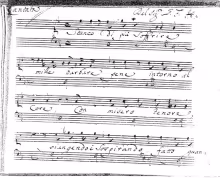 Cantata Del Sig.r
Stanco di più soffrire
mile barbare pene intorno al
Core Con misero tenore
piangendo e sospirando fatto quasi